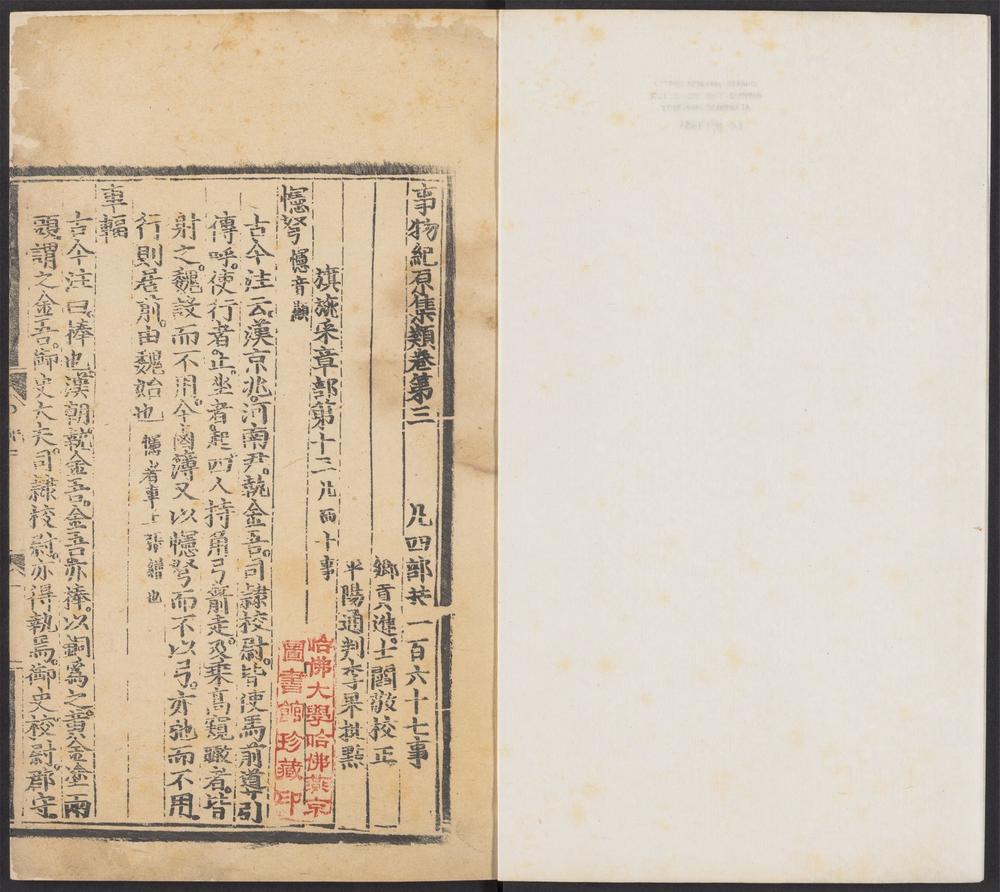 事物紀原集類卷第三 凡四部共一百六十七事
鄉貢進士閻敬校正
平陽通判李果批點
旗旐采章部第十三 凡四十事
幰弩 幰音顯
古今注云。漢京兆。河南尹。執金吾。司隸校尉。皆使馬前導引
傳呼。使行者止。坐者起。四人持角弓箭走。及乘高窺瞰者。皆
射之。魏設而不用。今鹵簿又以幰弩而不以弓。亦弛而不用。
行則居前。由魏始也 幰者車上張繒也
車輻
古今注曰。棒也。漢朝執金吾。金吾亦棒。以銅為之。黃金塗兩
頭。謂之金吾。御史大夫。司隸校尉。亦得執焉。御史校尉。郡守。
哈佛大學哈佛燕京
圖書館珍藏印